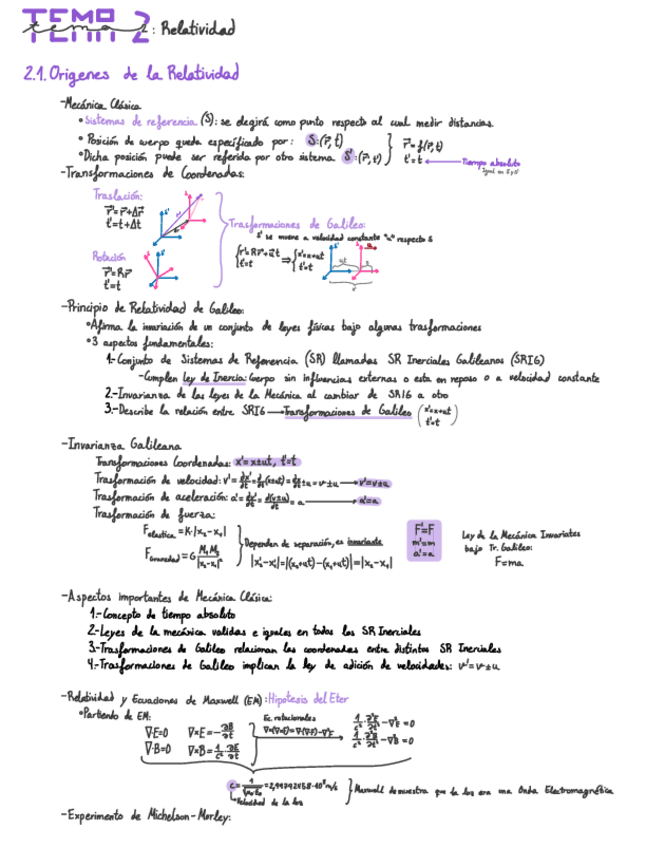 TEMA
tema 2: Relatividad
2.1. Origenes de la Relatividad
-Mecánica Clásica
•Sistemas de referencia (S): se elegirá como punto respecto al cual medir distancias.
•Posición de cuerpo queda especificado por: S:(r⃗,t)
r⃗=f(r⃗,t)
•Dicha posición puede ser referida por otro sistema S':(r⃗,t)
t'=t ← Tiempo absoluto
Igual en S y S'
-Transformaciones de Coordenadas:
Traslación:
r⃗'=r⃗+Δr⃗
t'=t+Δt
Rotación
r⃗'=Rr⃗
t'=t
Trasformaciones de Galileo:
S' se mueve a velocidad constante "u" respecto S
{r⃗'=Rr⃗+u⃗t ⇒ {x'=x±ut
t'=t t'=t
-Principio de Relatividad de Galileo:
•Afirma la invariación de un conjunto de leyes físicas bajo algunas trasformaciones
•3 aspectos fundamentales:
1.-Conjunto de Sistemas de Referencia (SR) llamadas SR Inerciales Galileanos (SRIG)
-Cumplen Ley de Inercia: Cuerpo sin influencias externas o esta en reposo o a velocidad constante
2.-Invarianza de las leyes de la Mecánica al cambiar de SRIG a otro
3.-Describe la relación entre SRIG → Transformaciones de Galileo (x'=x±ut
t'=t)
-Invarianza Galileana
Transformaciones Coordenadas: x'=x±ut, t'=t
Trasformación de velocidad: v'=dx'/dt=d/dt(x±ut)=dx/dt±u=v±u → v'=v±u
Trasformación de aceleración: a'=dv'/dt=d(v±u)/dt=a → a'=a
Trasformación de fuerza:
F elastica=K·|x₂-x₁|
F Gravedad=G M₁M₂/|x₂-x₁|²
Dependen de separación, es invariante
|x₂'-x₁'|=|(x₂+ut)-(x₁+ut)|=|x₂-x₁|
F'=F
m'=m
a'=a
Ley de la Mecánica Invariantes
bajo Tr. Galileo:
F=ma
-Aspectos importantes de Mecánica Clásica:
1.-Concepto de tiempo absoluto
2.-Leyes de la mecánica validas e iguales en todos los SR Inerciales
3.-Trasformaciones de Galileo relacionan las coordenadas entre distintos SR Inerciales
4.-Trasformaciones de Galileo implican la ley de adición de velocidades: v'=v±u
-Relatividad y Ecuaciones de Maxwell (EM): Hipotesis del Eter
•Partiendo de EM:
∇·E=0 ∇×E=-∂B/∂t
∇·B=0 ∇×B=1/c²·∂E/∂t
Ec. rotacionales
∇×(∇×E)=∇(∇·E)-∇²E
1/c²·∂²E/∂t²-∇²E=0
1/c²·∂²B/∂t²-∇²B=0
c=1/√μ₀ε₀=2,99792458·10⁸m/s
Velocidad de la luz
Maxwell demuestra que la luz era una Onda Electromagnética
-Experimento de Michelson-Morley: